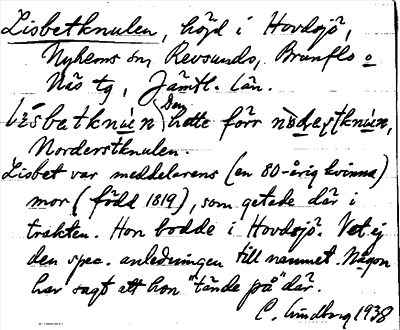 Lisbetknulen, höjd i Hovdsjö,
Nyhems sn, Revsunds, Brunflo o
Näs tg, Jämtl. län.
lisbatknùn, den hette förr
Norderstknulen.
Lisbet var meddelarens (en 80-årig kvinna)
mor (född 1819), som getade där i
trakten. Hon bodde i Hovdsjö. Vet ej
den spec. anledningen till namnet. Någon
har sagt att hon "tände på" där.
C. Lindberg 1938